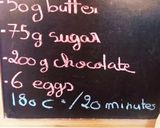 -50g butter
-75g sugar
-200g chocolate
-6 eggs
180C°/20 minutes